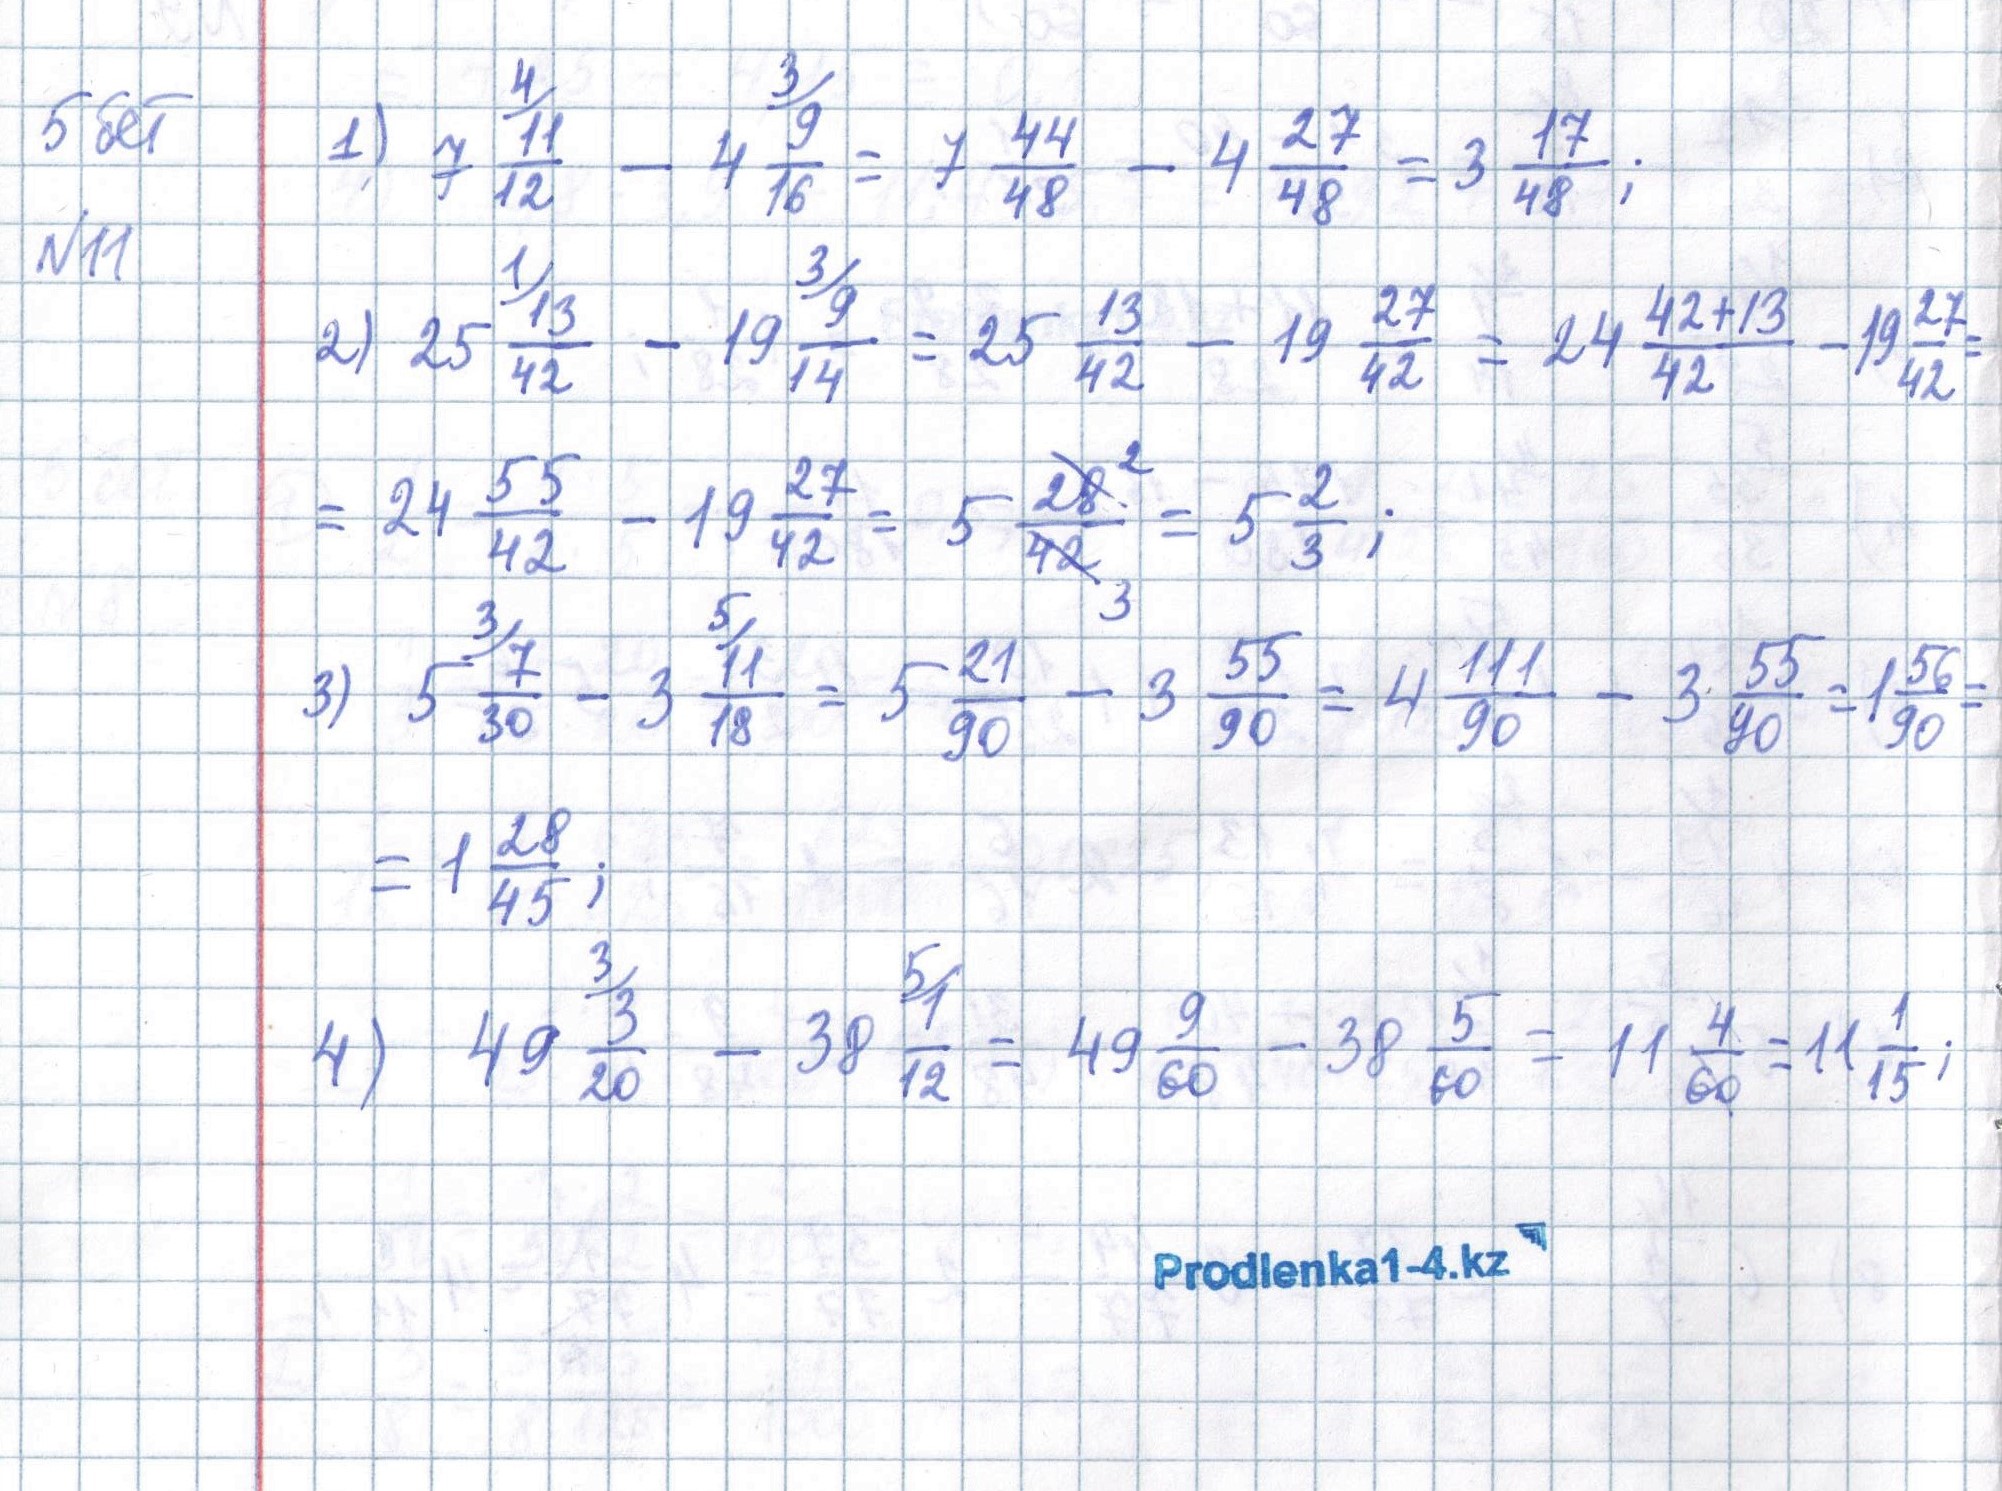 5 бет
№11
1) 7 4/ 11/12 - 4 3/ 9/16 = 7 44/48 - 4 27/48 = 3 17/48;
2) 25 1/ 13/42 - 19 3/ 9/14 = 25 13/42 - 19 27/42 = 24 42+13/42 - 19 27/42 =
= 24 55/42 - 19 27/42 = 5 28/42 2 3 = 5 2/3;
3) 5 3/ 7/30 - 3 5/ 11/18 = 5 21/90 - 3 55/90 = 4 111/90 - 3 55/90 = 1 56/90 =
= 1 28/45;
4) 49 3/ 3/20 - 38 5/ 1/12 = 49 9/60 - 38 5/60 = 11 4/60 = 11 1/15;
Prodlenka1-4.kz